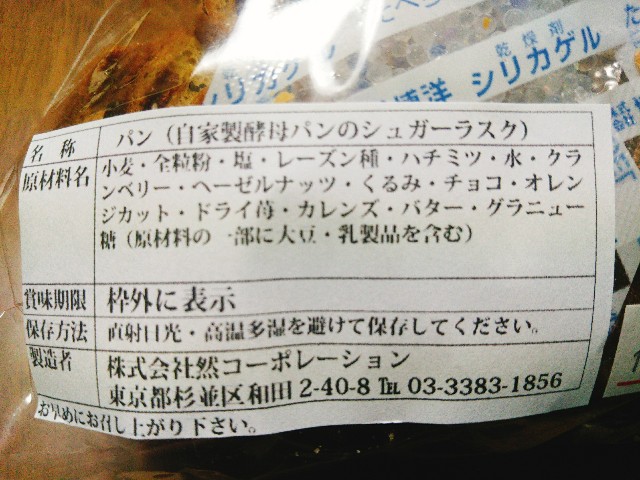 乾燥剤
シリカゲル
名 称 パン（自家製酵母パンのシュガーラスク）
原材料名 小麦・全粒粉・塩・レーズン種・ハチミツ・水・クラ
ンベリー・ヘーゼルナッツ・くるみ・チョコ・オレン
ジカット・ドライ苺・カレンズ・バター・グラニュー
糖（原材料の一部に大豆・乳製品を含む）
賞味期限 枠外に表示
保存方法 直射日光・高温多湿を避けて保存してください。
製造者 株式会社然コーポレーション
東京都杉並区和田 2-40-8 ℡ 03-3383-1856
お早めにお召し上がり下さい。